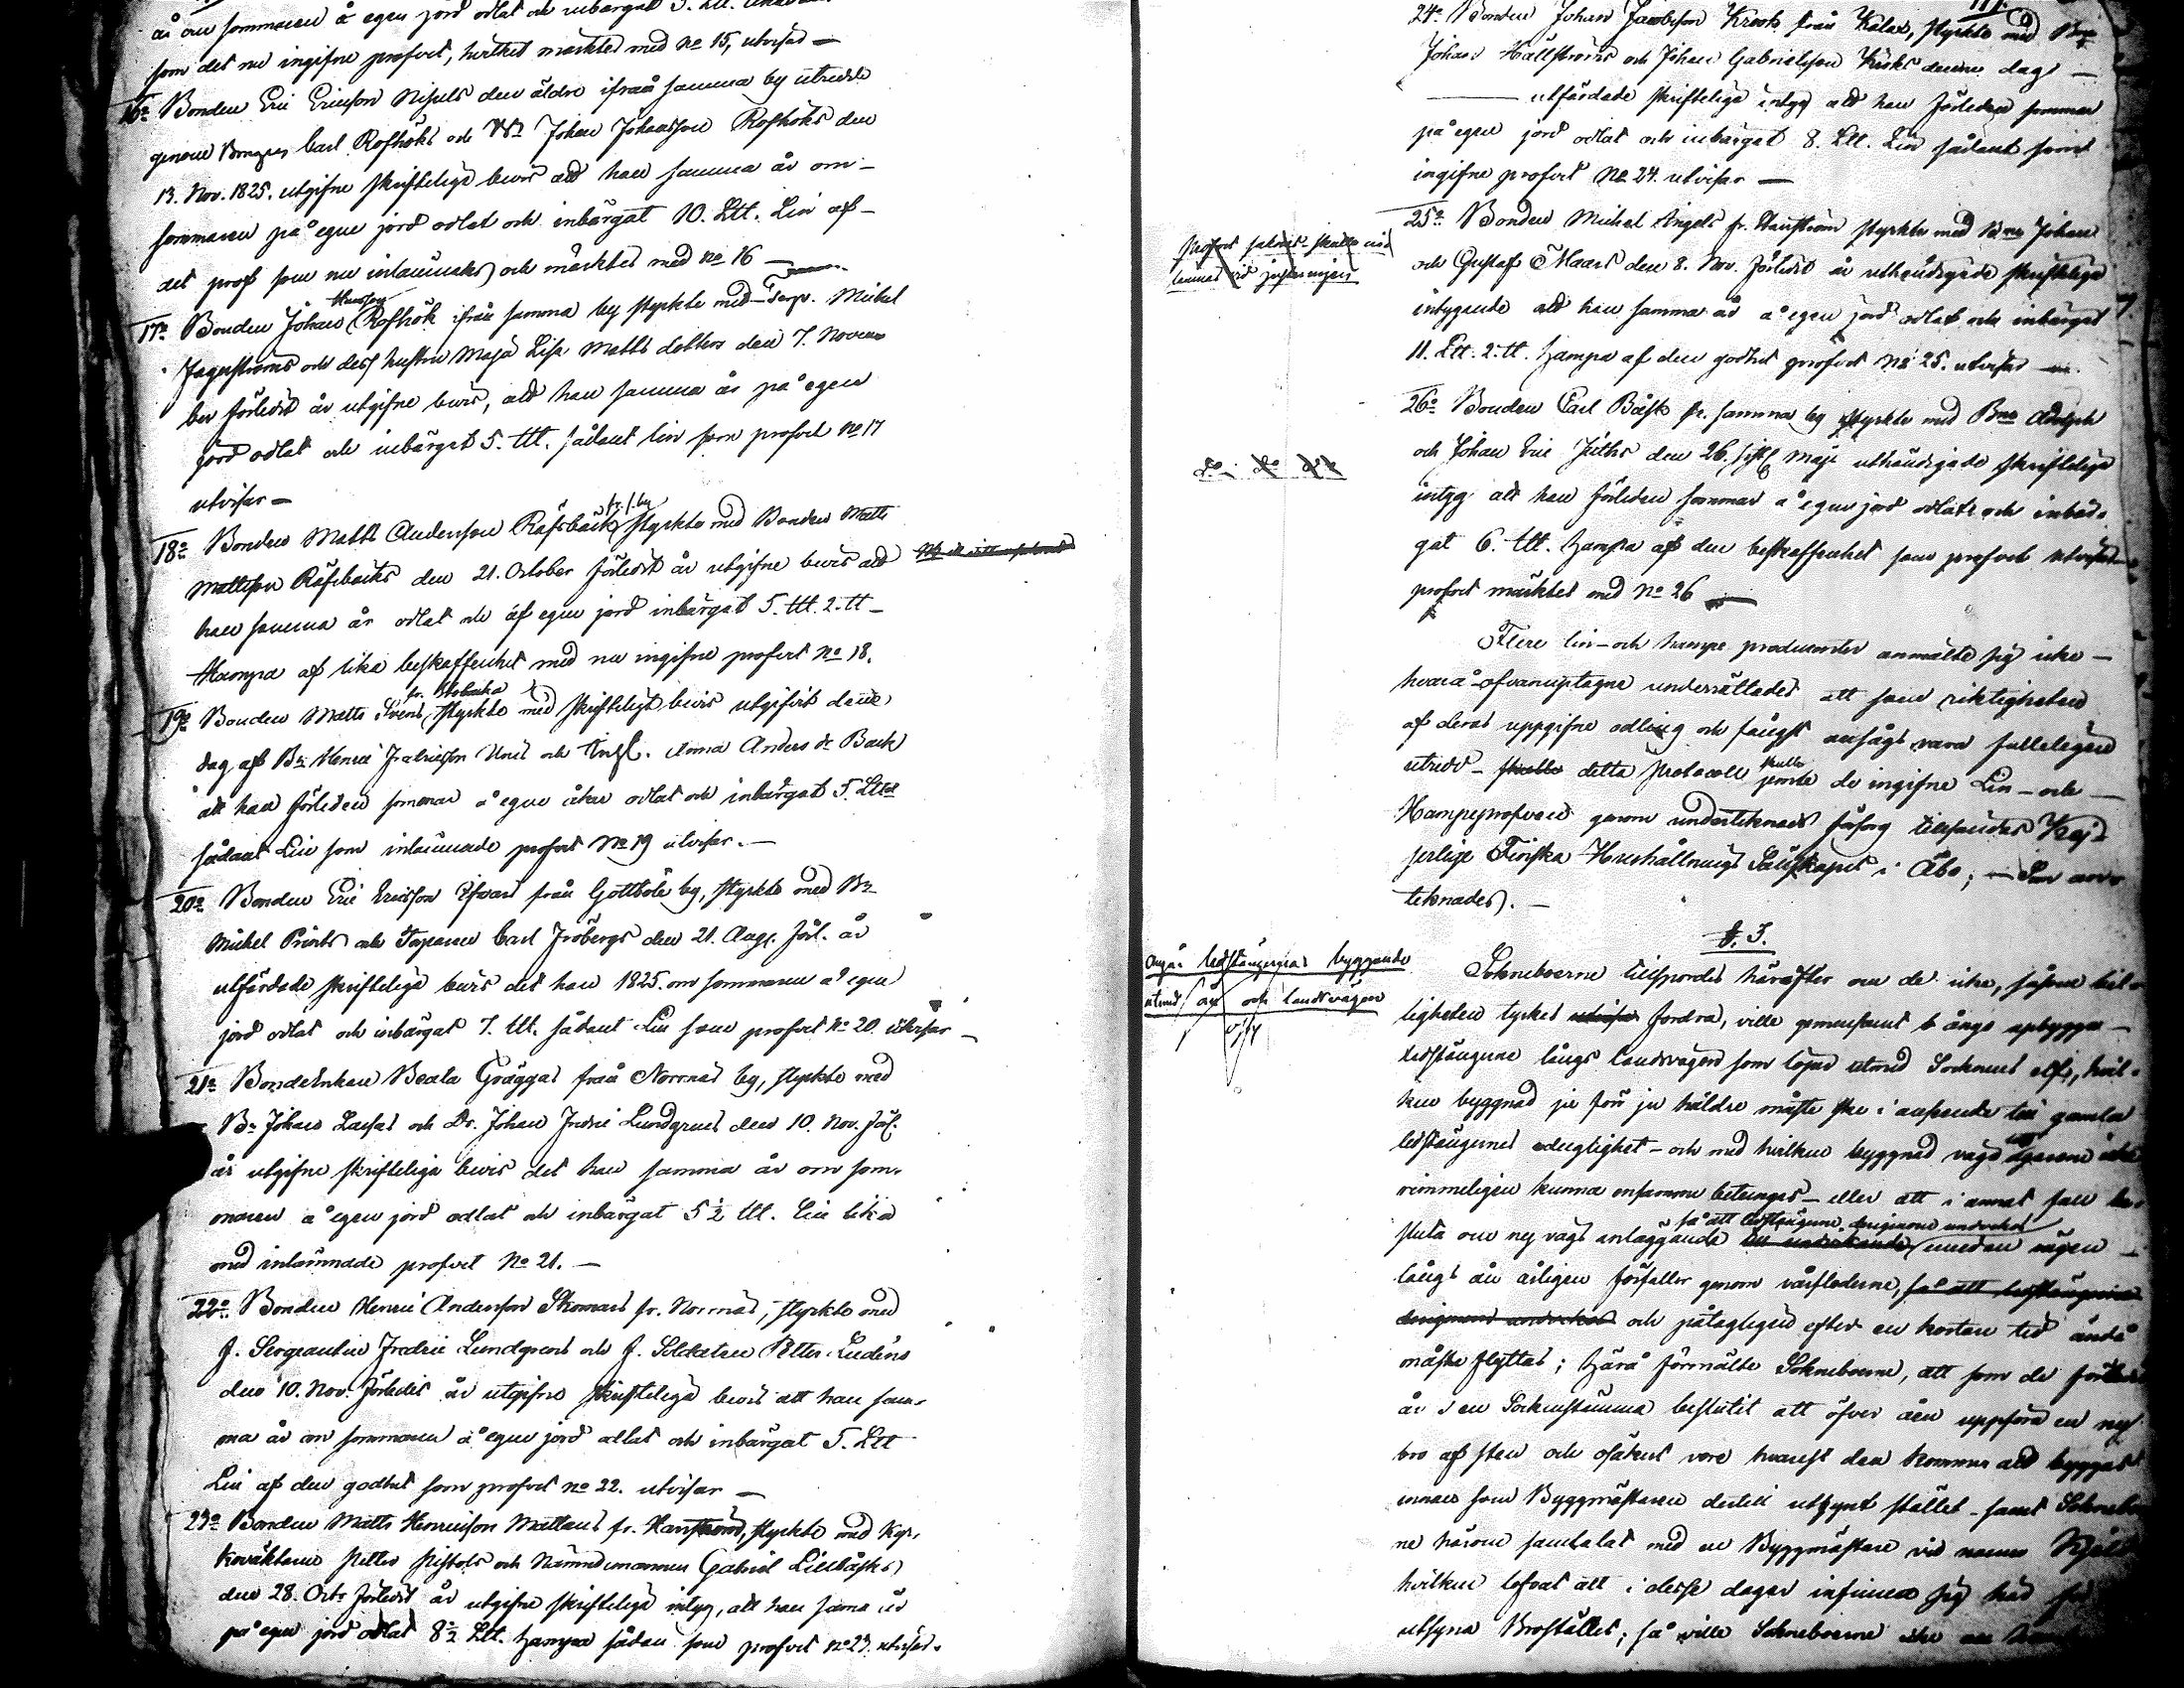 år om sommaren å egen jord odlat och inbärgat 5. Ltt.
som det nu ingifne profvet, hvilket märktes med No 15, utvisar —
16o Bonden Eric Ericsson Nissils den äldre ifrån samma by utredde
genom Carl Rofhöks och Johan Johansson Rofhöks den
13. Nov. 1825. utgifne skrifteliga bevis att han samma år om-
sommaren på egen jord odlat och inbärgat 10. Ltt. Lin af-
det prof som nu inlämnades och märktes med No 16 —
17o Bonden Johan Hansson Rofhök ifrån samma by styrkte med Michel
Fagerströms och dess hustru Maja Lisa Matts dotters den 7. Novem
ber förledit år utgifne bevis, att han samma år på egen
jord odlat och inbärgat 5. Ltt. sådant lin som profvet No 17
utvisar —
18o Bonden Matts Andersson Räfsbäck fr. s. by styrkte med Bonden Matts
Mattsson Räfsbäcks den 21. October förledit år utgifne bevis att
han samma år odlat och af egen jord inbärgat 5. Ltt. 2. tt —
Hampa af lika beskaffenhet med nu ingifne profvet No 18.
19o Bonden Matts Svens styrkte med skrifteligt bevis utgifvit denne
dag af Bn Henric och Anders Back
att han förleden sommar å egen åker odlat och inbärgat 5. Ltt
sådant Lin som inlämnade profvet No 19 utvisar. —
20o Bonden Eric Ericsson Ifvars från Gottböle by, styrkte med Bn
Michel Prints och Carl Fröbergs den 21. Aug. förl. år
utfärdade skrifteliga bevis det han 1825. om sommaren å egen
jord odlat och inbärgat 7. Ltt. sådant Lin som profvet No 20 utvisar —
21o BondeEnkan Beata Gräggas från Norrnäs by, styrkte med
Bn Johan Lassas och Dr. Johan Fredric Lundgrens den 10. Nov. förl.
år utgifne skrifteliga bevis det han samma år om som-
maren å egen jord odlat och inbärgat 5 1/2 Ltt. Lin lika
med inlämnade profvet No 21. —
22o Bonden Henric Andersson Skomars fr. Norrnäs, styrkte med
f. Sergeanten Fredric Lundgrens och f. Soldaten Petter Ludéns
den 10. Nov. förledit år utgifne skrifteliga bevis att han sam-
ma år om sommaren å egen jord odlat och inbärgat 5. Ltt
Lin af den godhet som profvet No 22. utvisar —
23o Bonden Matts Henricsson Mattans fr. Harrström, styrkte med Kyr-
kovaktaren Petter Pistols och Nämndemannen Gabriel Lillbåsks
den 28. Octr förledit år utgifne skrifteliga intyg, att han samma år
på egen jord odlat 8 1/2 Ltt. hampa sådan som profvet No 23. utvisar.
24o Bonden Johan Jacobsson Krook från Kalax, styrkte med Bne
Johan Hällströms och Johan Gabrielsson Krooks denne dag —
— utfärdade skrifteliga intyg att han förleden sommar
på egen jord odlat och inbärgat 8. Ltt. Lin sådant som
ingifne profvet No 24. utvisar —
25o Bonden Michel Ängels fr. Harrström styrkte med Bne Johan
och Gustaf Maars den 8. Nov. förledit år uthändigade skrifteliga
intygande att han samma år å egen jord odlat och inbärgat
11. Ltt. 2. tt. hampa af den godhet profvet No 25. utvisar —
26o Bonden Carl Båsk fr. samma by styrkte med Bne Adolph
och Johan Eric Juths den 26. sistl. Maji uthändigade skrifteliga
intyg att han förleden sommar å egen jord odlat och inbär-
gat 6. Ltt. hampa af den beskaffenhet som profvet utvisar
profvet märktes med No 26 —
do do do
Flere lin- och hampe producenter anmälte sig icke —
hvarå ofvanuptagne underrättades att som riktigheten
af deras uppgifne odling och fångst ansågs vara fulleligen
utredd — skulle detta Protocoll jemte de ingifne Lin- och
Hampeprofven genom undertecknads försorg tillsändas Kej-
serlige Finska Hushållnings Sällskapet i Åbo; — Som an-
teknades. —
§. 3.
Angår ledstängernas byggande
utmed ån och landsvägen
Sokneboerne tillspordes härefter om de icke, såsom bil-
ligheten tyckes fordra, ville gemensamt
ledstängerne längs landsvägen som löper utmed Socknens elf, hvil-
ken byggnad ju förr ju häldre måste ske i anseende till gamla
ledstängernes odugtighet — och med hvilken byggnad vägägarene icke
rimmeligen kunna ensamme betungas — eller att i annat fall be-
sluta om ny vägs anläggande så att ledstängerne derigenom undvekos emedan vägen —
längs ån årligen förfaller genom vårfloderne, så att ledstängerne
derigenom undvekos och påtagligen efter en kortare tid ändå
måste flyttas; härå förmälte Sokneboerne, att som de förledit
år i en Sockenstämma beslutit att öfver åen uppföra en ny
bro af sten och osäkert vore hvarest den kommer att byggas
innan som Byggmästaren dertill utsynt stället — samt Soknebor
ne härom samtalat med en Byggmästare vid namn
hvilken lofvat att i desse dagar infinna sig här för
utsyna Brostället; så ville Sokneboerne icke